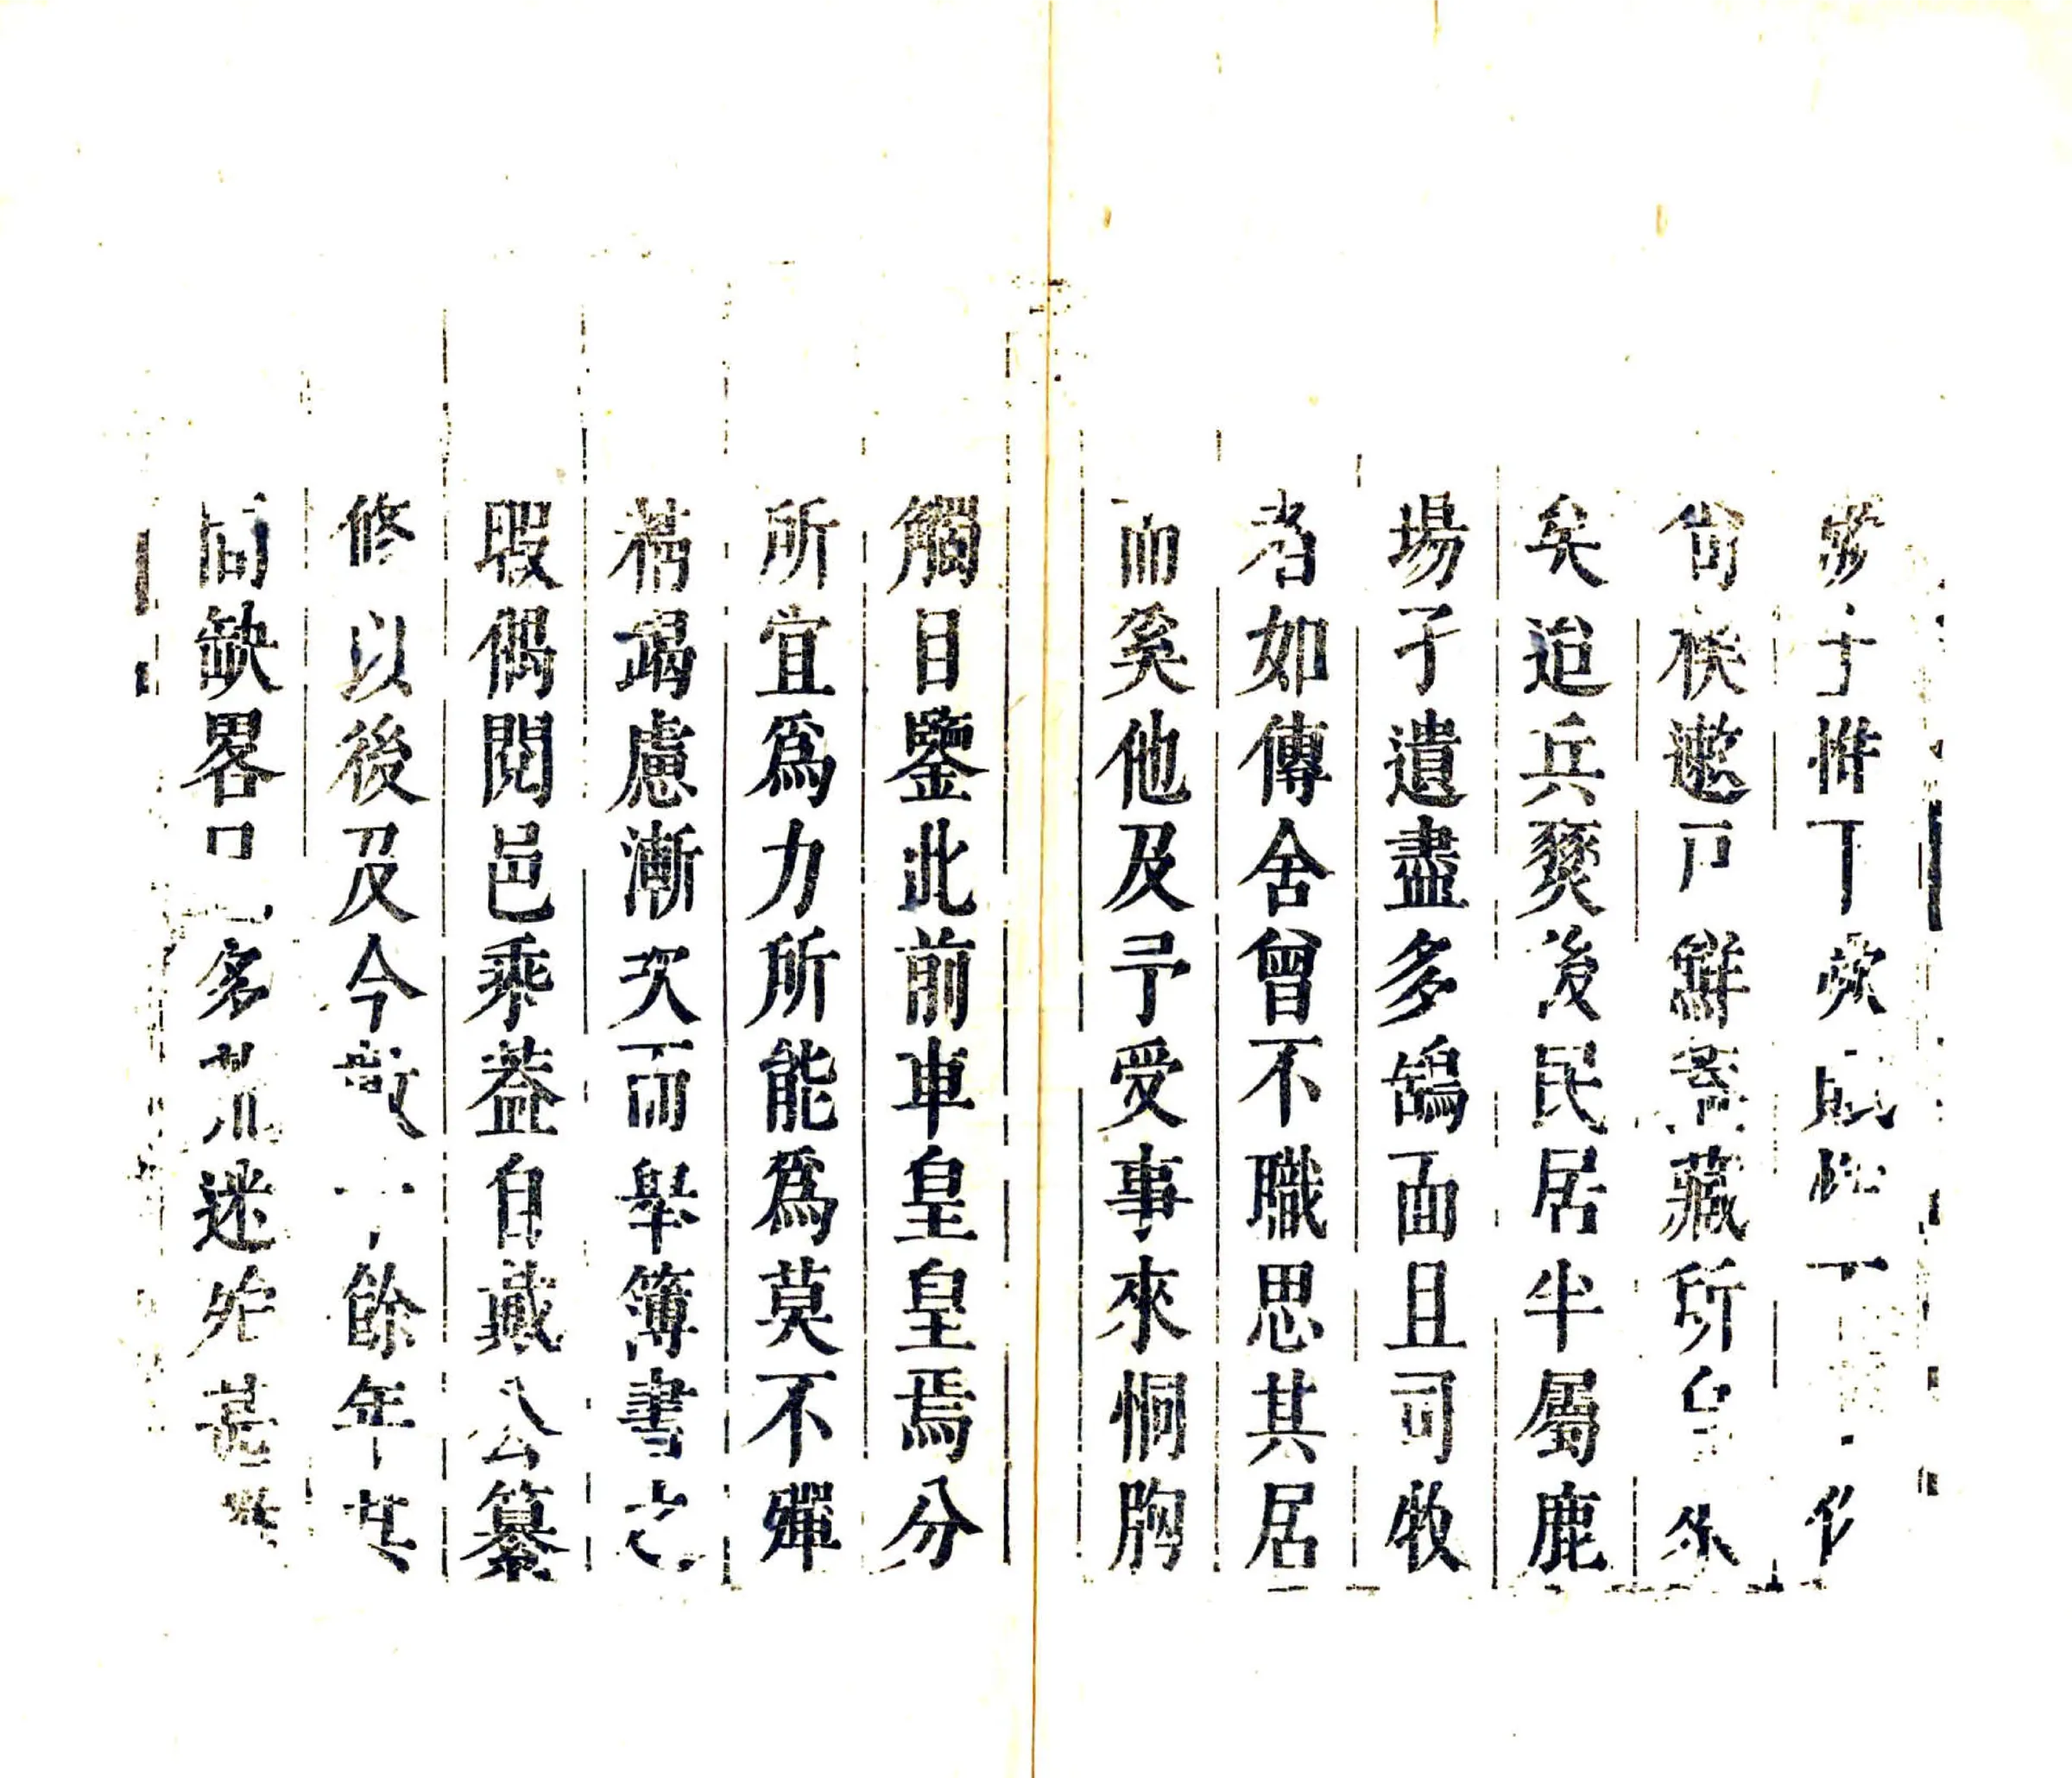 于
尙 遨戸鮮蓄藏所
矣迨兵燹後民居半屬鹿
場孑遺盡多鵠面且司牧
者如傳舍曾不職思其居
而奚他及予受事來恫胸
觸目鑒此前車皇皇焉分
所宜爲力所能爲莫不殫
精竭慮漸次而舉簿書之
暇偶閱邑乘葢自戴公纂
修以後及今數十餘年其
間缺畧 多 迷